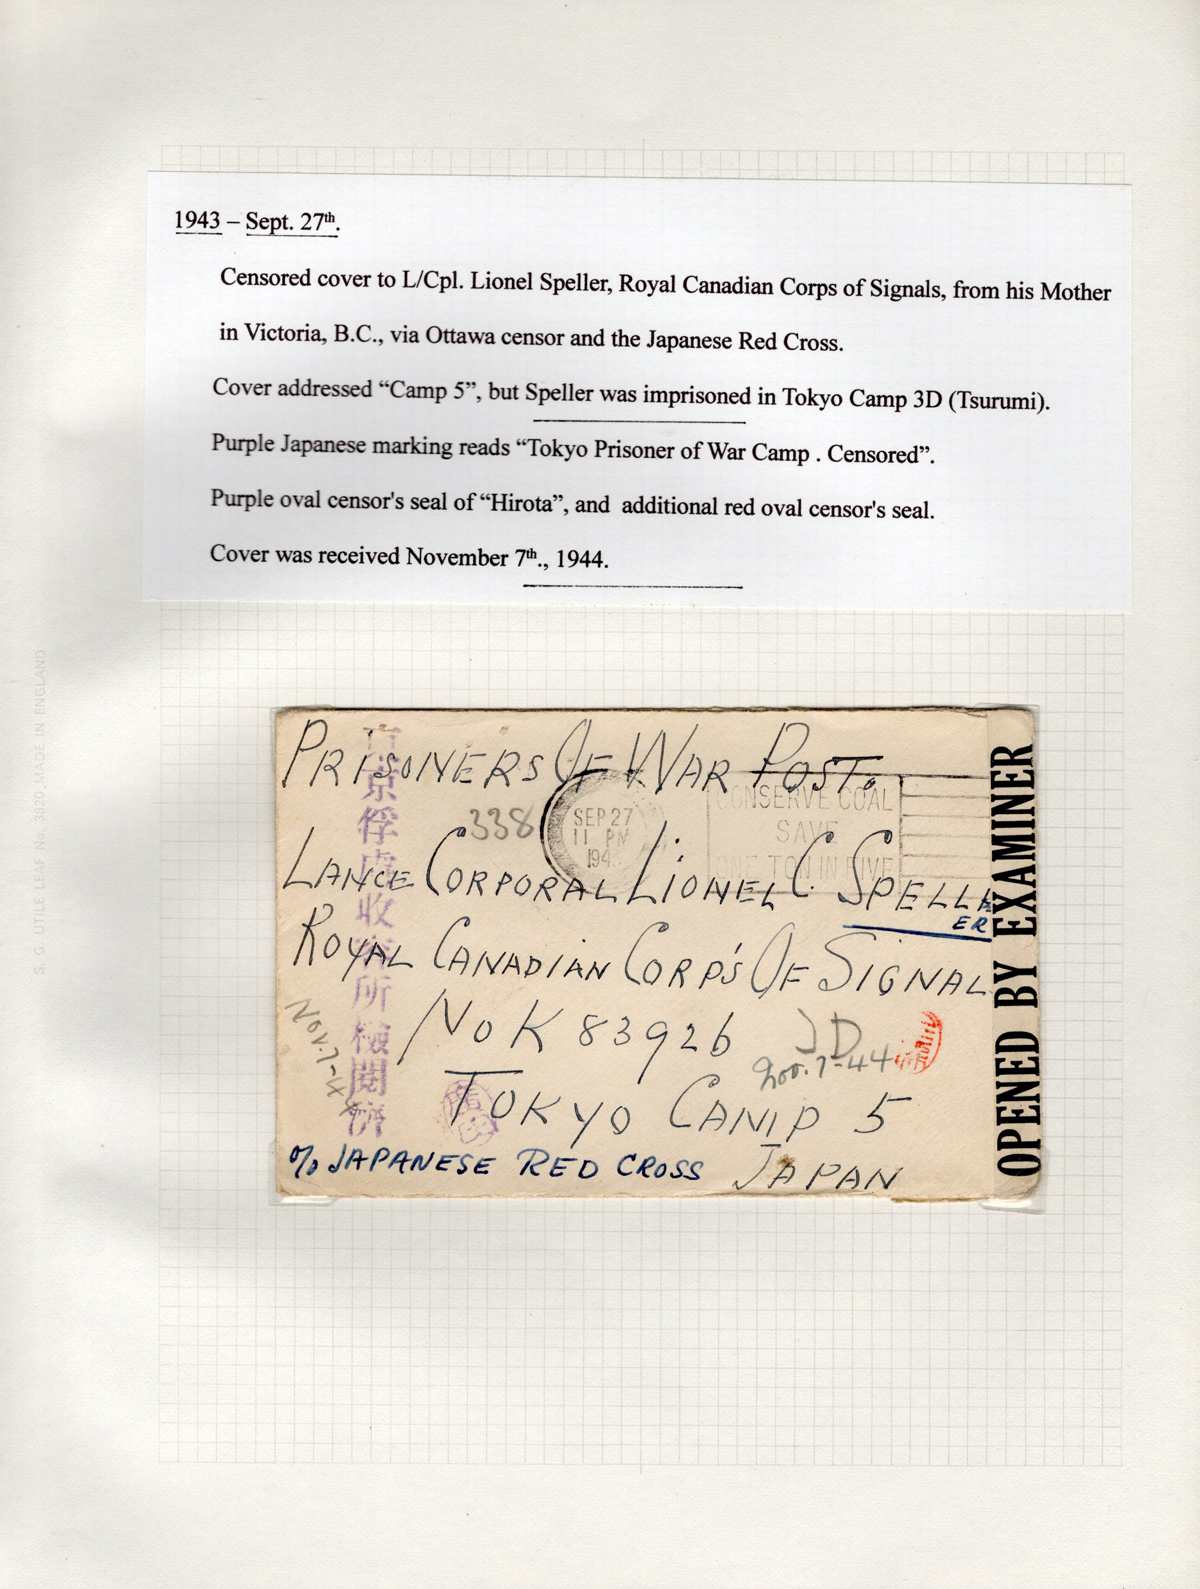 1943 – Sept. 27th.
Censored cover to L/Cpl. Lionel Speller, Royal Canadian Corps of Signals, from his Mother
in Victoria, B.C., via Ottawa censor and the Japanese Red Cross.
Cover addressed “Camp 5”, but Speller was imprisoned in Tokyo Camp 3D (Tsurumi).
Purple Japanese marking reads “Tokyo Prisoner of War Camp . Censored”.
Purple oval censor's seal of “Hirota”, and additional red oval censor's seal.
Cover was received November 7th., 1944.
S. G. UTILE LEAF No. 3820, MADE IN ENGLAND
PRISONERS OF WAR POST.
338
SEP 27
11 PM
194
CONSERVE COAL
SAVE
ONE TON IN FIVE
LANCE CORPORAL LIONEL C. SPELL
ER
ROYAL CANADIAN CORP'S OF SIGNAL
No K 83926
3D
Nov. 7-44
Nov. 7-44
TOKYO CAMP 5
c/o JAPANESE RED CROSS
JAPAN
京俘虜收容所檢閱濟
OPENED BY EXAMINER